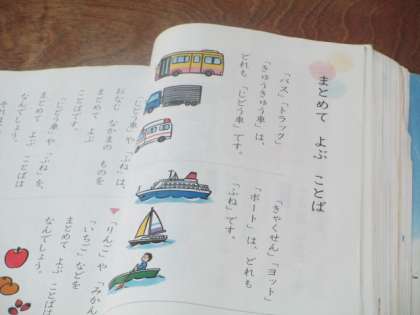 まとめて よぶ ことば
「バス」「トラック」
「きゅうきゅう車」は、
どれも 「じどう車」です。
「きゃくせん」「ヨット」
「ボート」は、どれも
「ふね」です。
「じどう車」や 「ふね」は、
おなじ なかまの ものを
まとめて よぶ
ことばです。
「じどう車」や 「ふね」を、
まとめて よぶ ことばは
なんでしょう。
「りんご」や 「みかん
「いちご」などを
まとめて よぶ ことばは
なんでしょう。